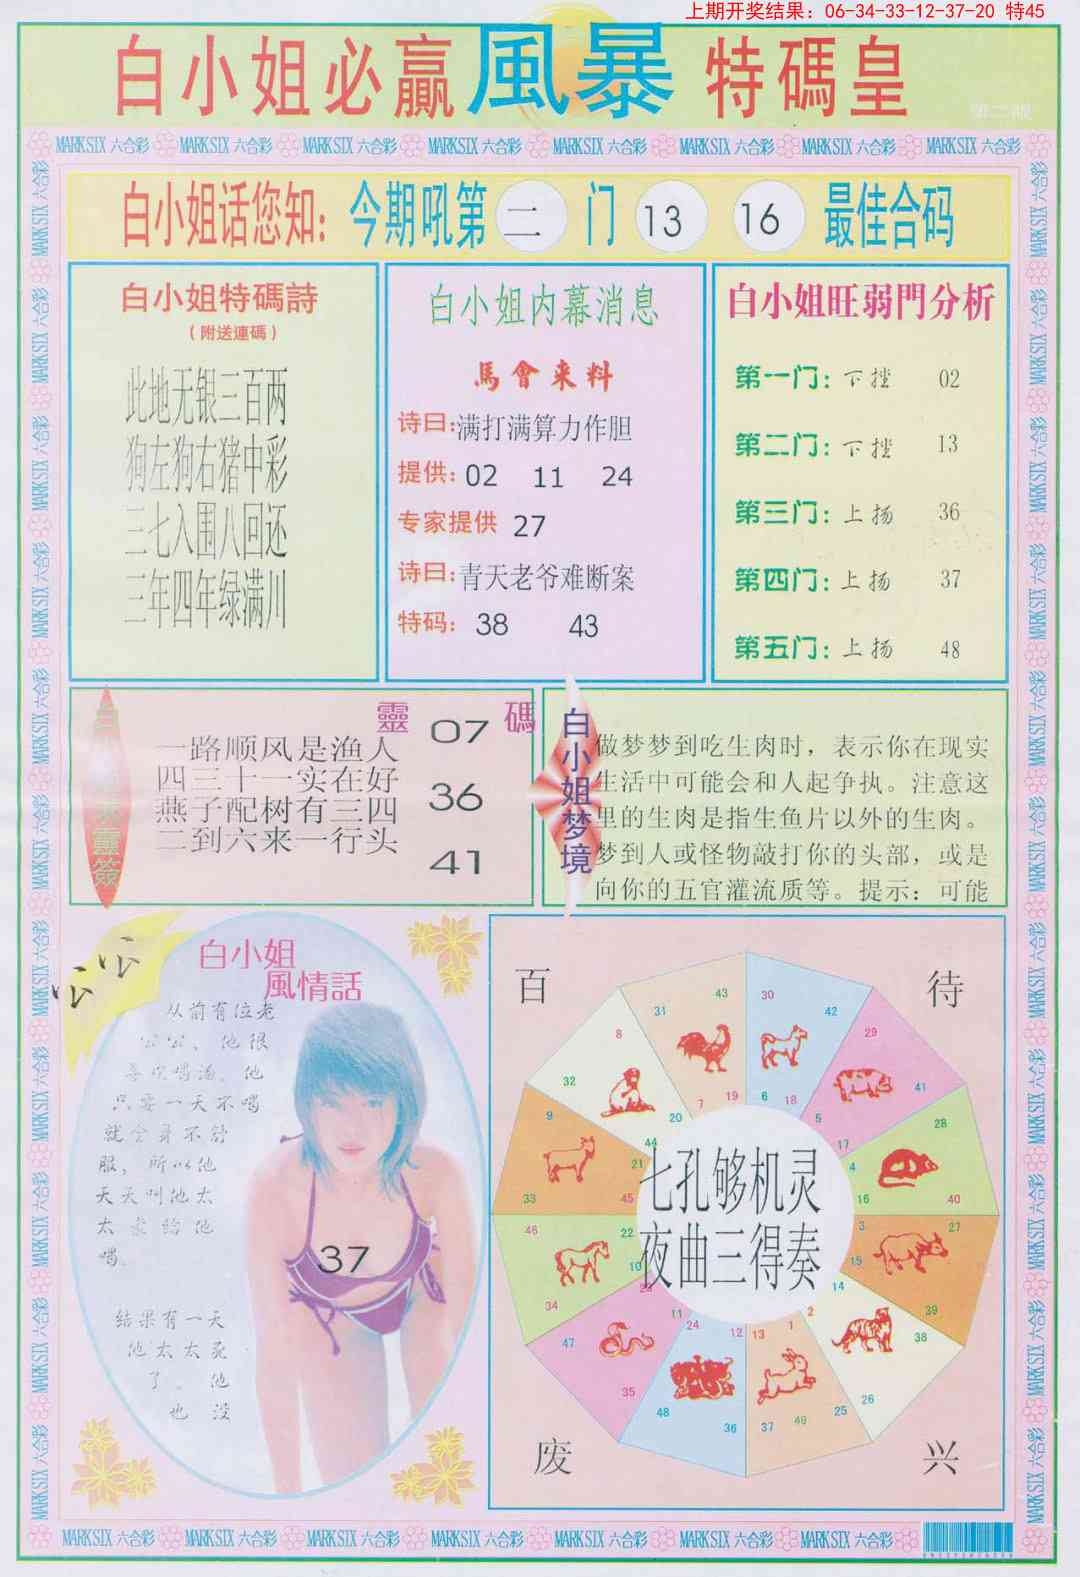 上期开奖结果：06-34-33-12-37-20 特45
白小姐必贏風暴特碼皇
第二版
MARK SIX 六合彩 MARK SIX 六合彩 MARK SIX 六合彩 MARK SIX 六合彩 MARK SIX 六合彩 MARK SIX 六合彩 MARK SIX 六合彩 MARK SIX 六合彩
白小姐话您知：今期吼第二门 13 16 最佳合码
白小姐特碼詩
（附送連碼）
此地无银三百两
狗左狗右猪中彩
三七入围八回还
三年四年绿满川
白小姐内幕消息
馬會来料
诗曰:满打满算力作胆
提供: 02 11 24
专家提供 27
诗曰:青天老爷难断案
特码: 38 43
白小姐旺弱門分析
第一门: 下挫 02
第二门: 下挫 13
第三门: 上扬 36
第四门: 上扬 37
第五门: 上扬 48
靈碼
一路顺风是渔人
四三十一实在好
燕子配树有三四
二到六来一行头
07
36
41
白小姐梦境
做梦梦到吃生肉时，表示你在现实
生活中可能会和人起争执。注意这
里的生肉是指生鱼片以外的生肉。
梦到人或怪物敲打你的头部，或是
向你的五官灌流质等。提示：可能
白小姐
風情話
从前有位老
公公、他很
喜欢喝酒。他
只要一天不喝
就全身不舒
服，所以他
天天叫他太
太拿给他
喝。
结果有一天
他太太死
了。他
也没
37
百待
废兴
七孔够机灵
夜曲三得奏
31 43 7 19
30 42 6 18
29 41 5 17
28 40 4 16
27 39 3 15
38 26 2 14
1 13 25 37 49
12 24 36 48
11 23 35 47
10 22 34 46
9 21 33 45
8 20 32 44
MARK SIX 六合彩 MARK SIX 六合彩 MARK SIX 六合彩 MARK SIX 六合彩 MARK SIX 六合彩 MARK SIX 六合彩 MARK SIX 六合彩